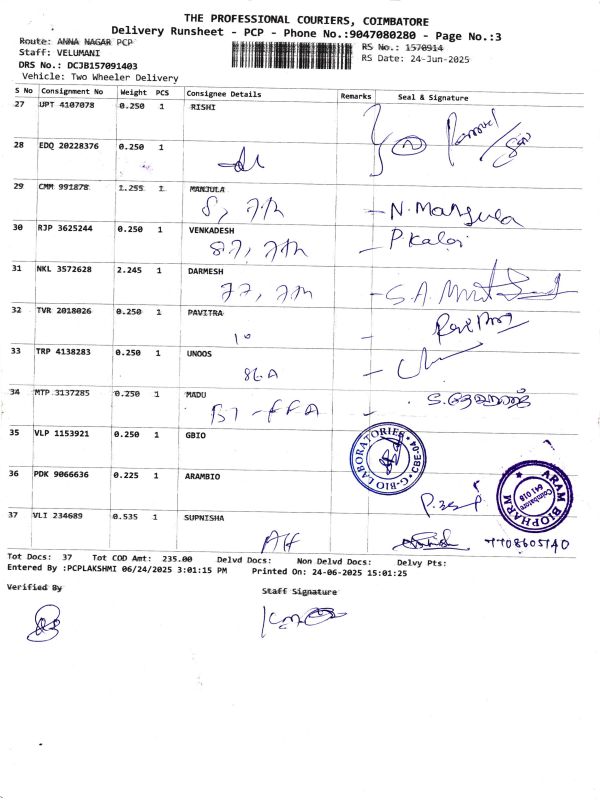 THE PROFESSIONAL COURIERS, COIMBATORE
Delivery Runsheet - PCP - Phone No.:9047080280 - Page No.:3
Route: ANNA NAGAR PCP
RS No.: 1570914
Staff: VELUMANI
RS Date: 24-Jun-2025
DRS No.: DCJB157091403
Vehicle: Two Wheeler Delivery
S No Consignment No Weight PCS Consignee Details Remarks Seal & Signature
27 UPT 4107078 0.250 1 RISHI
28 EDQ 20228376 0.250 1
29 CMM 991878 1.255 1 MANJULA
N. Manjula
30 RJP 3625244 0.250 1 VENKADESH
P. Kalai
31 NKL 3572628 2.245 1 DARMESH
32 TVR 2018026 0.250 1 PAVITRA
10
33 TRP 4138283 0.250 1 UNOOS
86-A
34 MTP 3137285 0.250 1 MADU
B7 - FFA
35 VLP 1153921 0.250 1 GBIO
G-BIO LABORATORIES CBE-04
36 PDK 9066636 0.225 1 ARAMBIO
ARAM BIOPHARM
Coimbatore
641 018
37 VLI 234689 0.535 1 SUPNISHA
7708605740
Tot Docs: 37 Tot COD Amt: 235.00 Delvd Docs: Non Delvd Docs: Delvy Pts:
Entered By :PCPLAKSHMI 06/24/2025 3:01:15 PM Printed On: 24-06-2025 15:01:25
Verified By Staff Signature